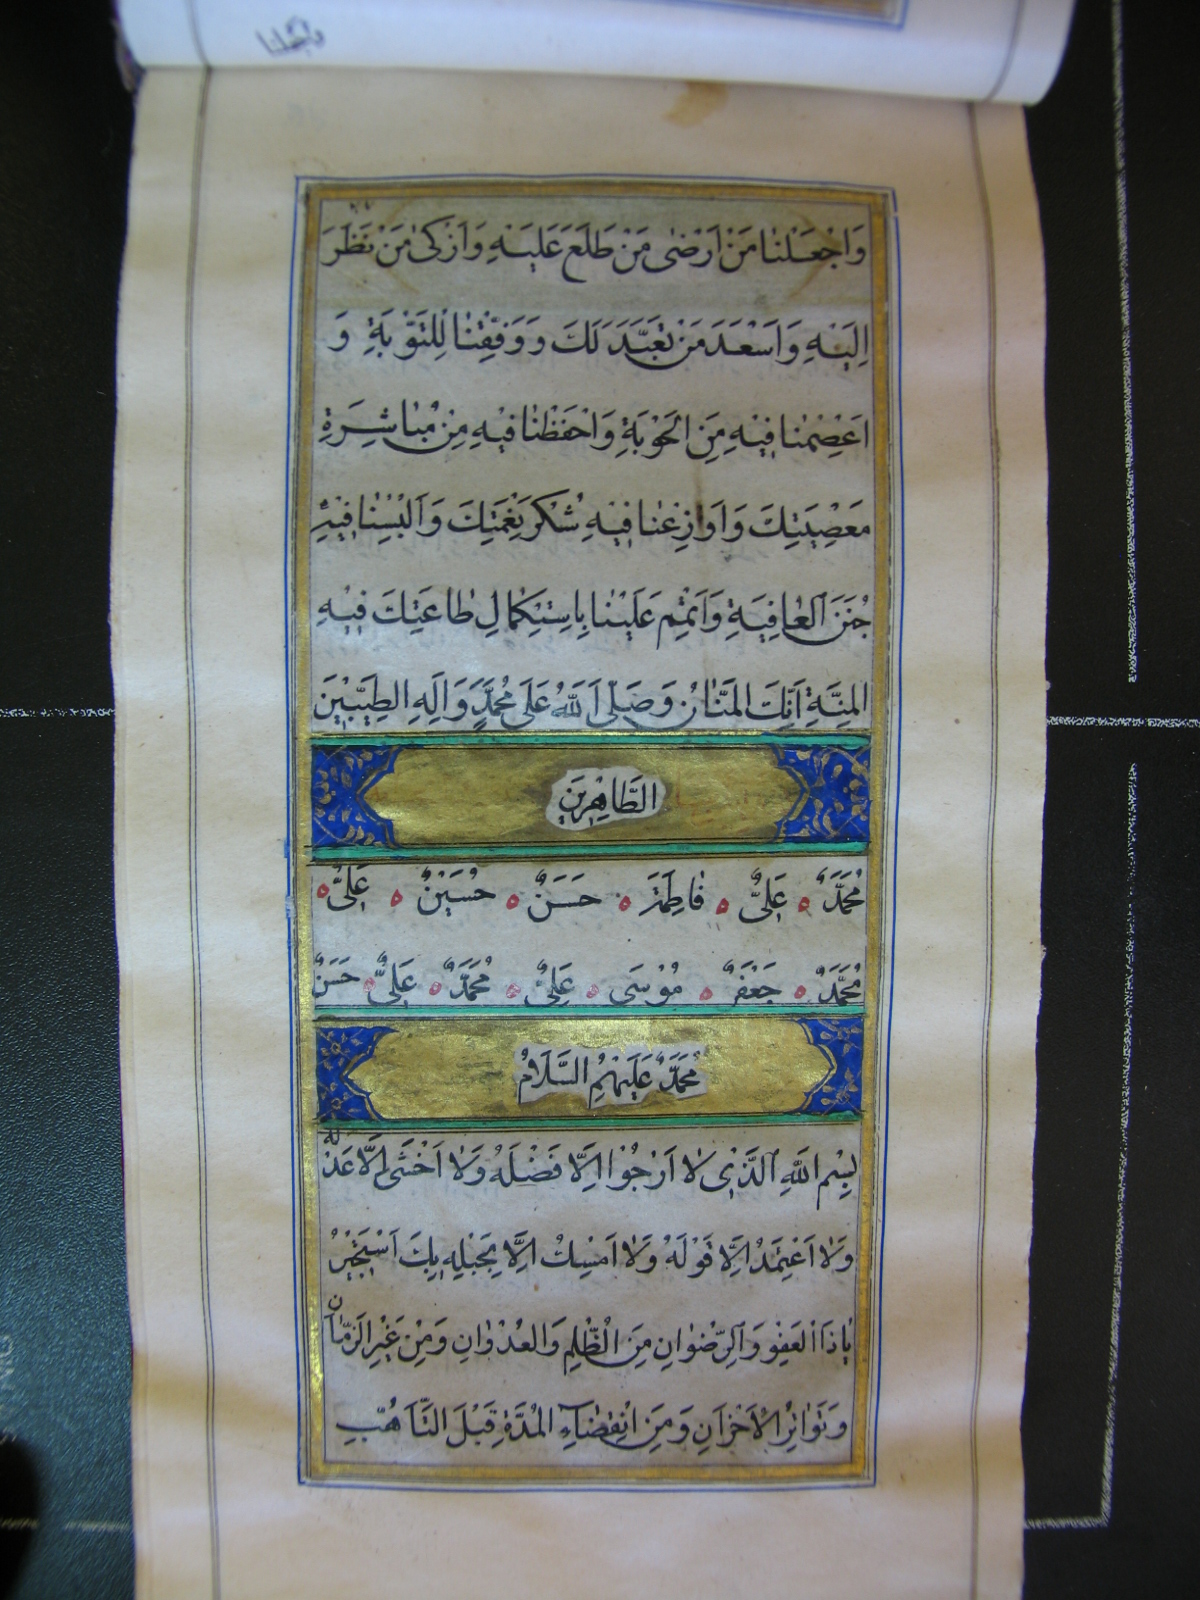 واجعلنا
وَاجْعَلْنٰا مَنْ اَرْضٰى مَنْ طَلَعَ عَلَيْهِ وَاَزْكىٰ مَنْ نَظَرَ
اِلَيْهِ وَاَسْعَدَ مَنْ تَعَبَّدَ لَكَ وَوَفِّقْنٰا لِلتَّوْبَةِ وَ
اعْصِمْنٰا فِيْهِ مِنَ الْحَوْبَةِ وَاحْفَظْنٰا فِيْهِ مِنْ مُبٰاشَرَةِ
مَعْصِيَتِكَ وَاَوْزِعْنٰا فِيْهِ شُكْرَ نِعْمَتِكَ وَاَلْبِسْنٰا فِيْهِ
جُنَنَ الْعٰافِيَةِ وَاَتْمِمْ عَلَيْنٰا بِاسْتِكْمٰالِ طٰاعَتِكَ فِيْهِ
الْمِنَّةِ اِنَّكَ الْمَنّٰانُ وَصَلَّى اللّٰهُ عَلىٰ مُحَمَّدٍ وَاٰلِهِ الطَّيِّبِيْنَ
الطَّاهِرِيَن
مُحَمَّدٌ عَلِىٌّ فٰاطِمَة حَسَنٌ حُسَيْنٌ عَلِىٌّ
مُحَمَّدٌ جَعْفَرٌ مُوْسَى عَلِىٌّ مُحَمَّدٌ عَلِىٌّ حَسَنٌ
مُحَمَّدٌ عَلَيْهِمُ السَّلَامُ
بِسْمِ اللّٰهِ الَّذِىْ لٰا اَرْجُوْا اِلّٰا فَضْلَهُ وَلٰا اَخْشٰى اِلّٰا عَدْلَهُ
وَلٰا اَعْتَمِدُ اِلّٰا قَوْلَهُ وَلٰا اَمْسِكُ اِلّٰا بِحَبْلِهِ بِكَ اَسْتَجِيْرُ
يٰا ذَا الْعَفْوِ وَالرِّضْوٰانِ مِنَ الظُّلْمِ وَالْعُدْوٰانِ وَمِنْ غَيْرِ الزَّمٰانِ
وَتَوٰاتُرِ الْاَحْزٰانِ وَمِنَ انْقِضٰاءِ الْمُدَّةِ قَبْلَ التَّاَهُّبِ